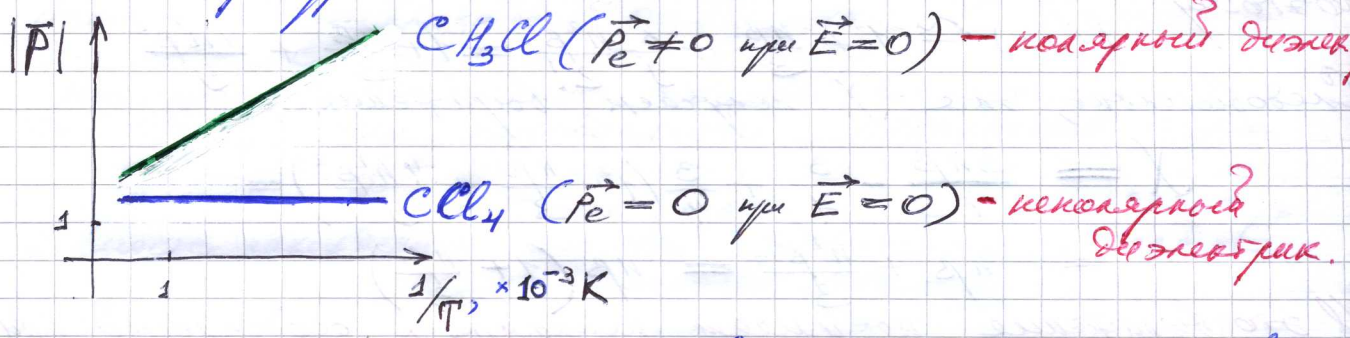 |P⃗|
CH₃Cl (P⃗e ≠ 0 при E⃗ = 0) – полярный диэлек
1
CCl₄ (P⃗e = 0 при E⃗ = 0) – неполярный
диэлектрик.
1
1/T, ×10⁻³ K